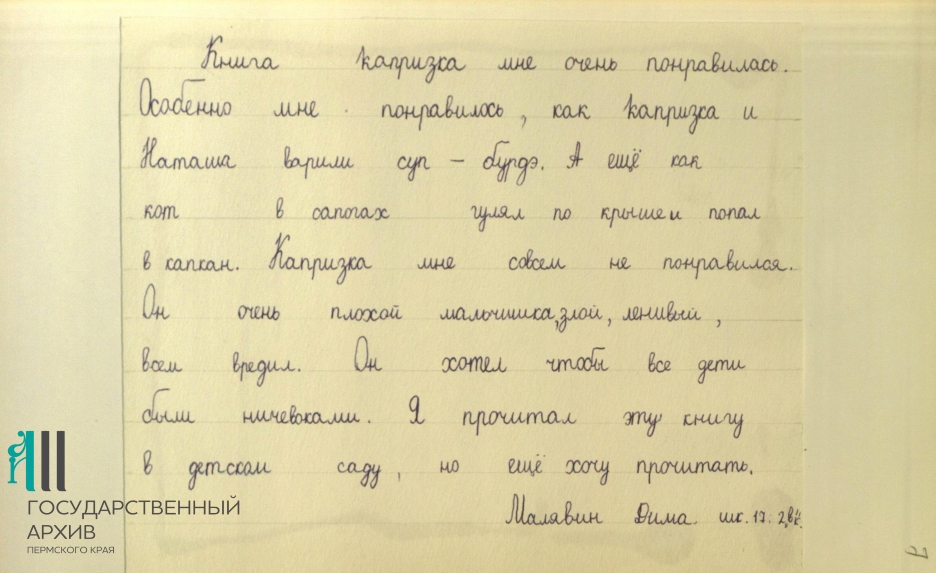 Книга капризка мне очень понравилась.
Особенно мне понравилось, как капризка и
Наташа варили суп – бурдэ. А ещё как
кот в сапогах гулял по крыше и попал
в капкан. Капризка мне совсем не понравился.
Он очень плохой мальчишка, злой, ленивый,
всем вредил. Он хотел чтобы все дети
были ничевоками. Я прочитал эту книгу
в детском саду, но ещё хочу прочитать.
Малявин Дима. шк. 17. 2
ГОСУДАРСТВЕННЫЙ
АРХИВ
ПЕРМСКОГО КРАЯ
7